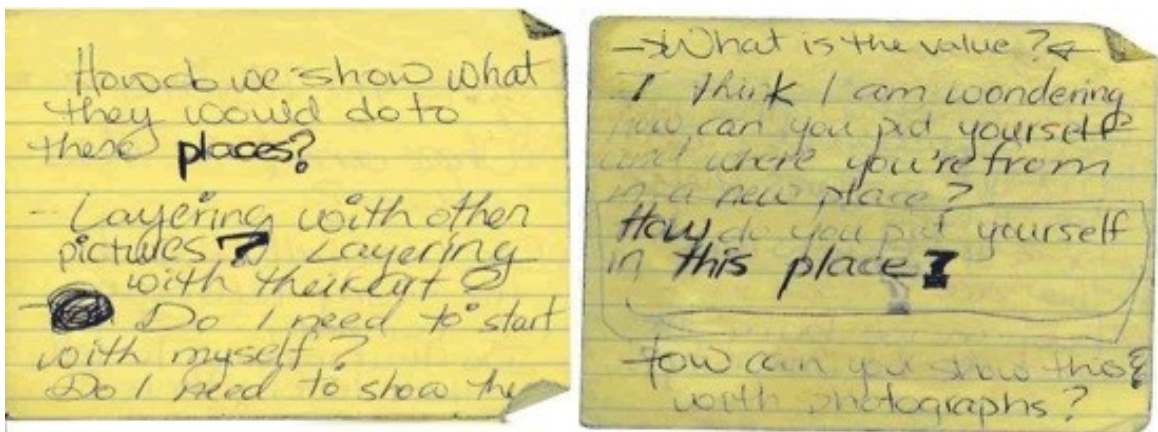 How do we show what
they would do to
these places?
- Layering with other
pictures? Layering
with their art?
- Do I need to start
with myself?
Do I need to show the
→What is the value?←
I think I am wondering
how can you put yourself
and where you're from
in a new place?
How do you put yourself
in this place?
How can you show this?
with photographs?